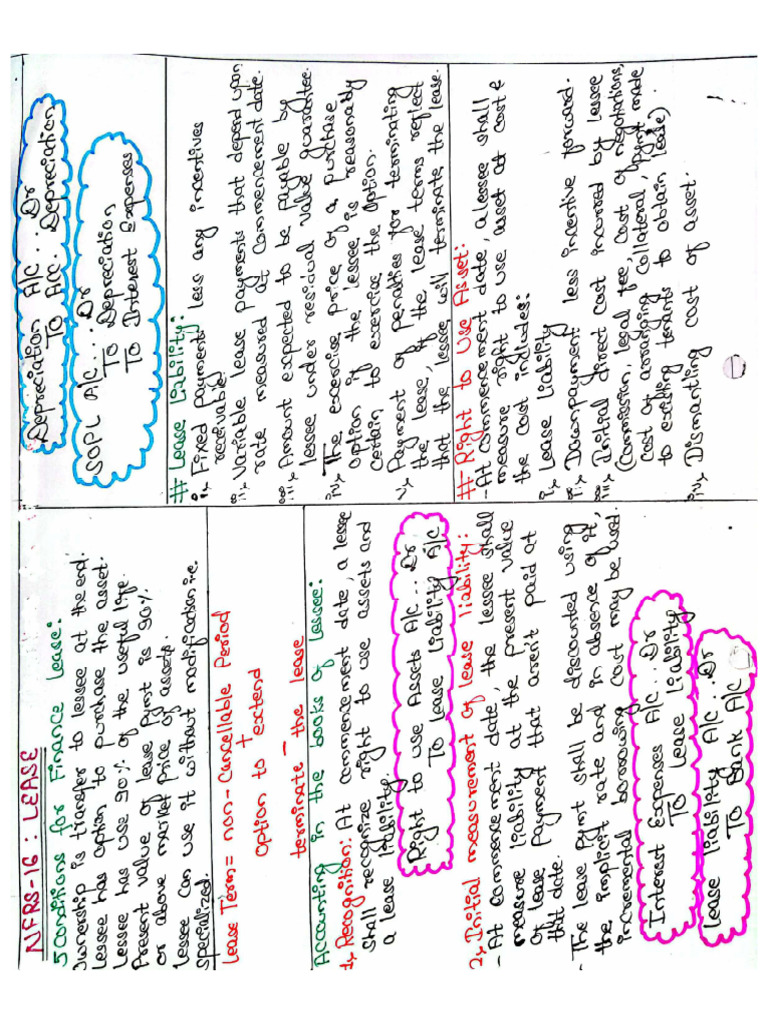 NFRS-16 : LEASE
5 Conditions for Finance Lease:
Ownership is transfer to lessee at the end.
Lessee has option to purchase the asset.
Lessee has use 90% of the useful life.
Present value of lease Pymt is 90%
or above market price of assets.
Lessee can use it without modification i.e.
specialized.
Lease Term = non-Cancellable Period
+
Option to extend
-
terminate the lease
Accounting in the books of lessee:
1, Recognition: At commencement date, a lessee
shall recognize right to use assets and
a lease liability.
Right to use Assets A/c... Dr
To Lease Liability A/c
2, Initial measurement of lease liability:
- At commencement date, the lessee shall
measure liability at the present value
of lease Payment that aren't paid at
that date.
- The lease Pymt shall be discounted using
the implicit rate and in absence of it,
incremental borrowing cost may be used.
Interest Expenses A/c... Dr
To Lease Liability
Lease liability A/c... Dr
To Bank A/c
Depreciation A/c... Dr
To Acc. Depreciation
SOPL A/c.... Dr
To Depreciation
To Interest Expenses
# Lease Liability:
i, Fixed payment less any incentives
receivable
ii, Variable lease payments that depend upon
rate measured at Commencement date.
iii, Amount expected to be payable by
lessee under residual value guarantee.
iv, The exercise price of a purchase
option if the lessee is reasonably
certain to exercise the option.
v, Payment of penalties for terminating
the lease, if the lease terms reflect
that the lessee will terminate the lease.
# Right to Use Asset:
- At commencement date, a lessee shall
measure right to use asset at cost &
the cost includes:
i, Lease liability
ii, Downpayment less incentive forward.
iii, Initial direct cost incurred by lessee
(Commission, legal fee, cost of negotiations,
cost of arranging collateral, Pymt made
to existing tenants to obtain lease)
iv, Dismantling cost of asset.